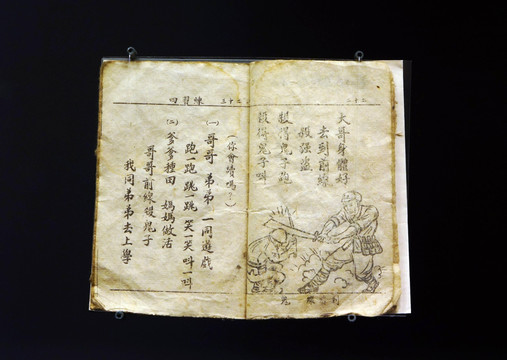 大哥身體好
去到前線
殺强盜
殺得鬼子跑
殺得鬼子叫
四習練
(你會唱嗎?)
(一) 哥哥 弟弟 一同遊戲
跑一跑 跳一跳 笑一笑 叫一叫
(二) 爹爹種田 媽媽做活
哥哥前線殺鬼子
我同弟弟去上學